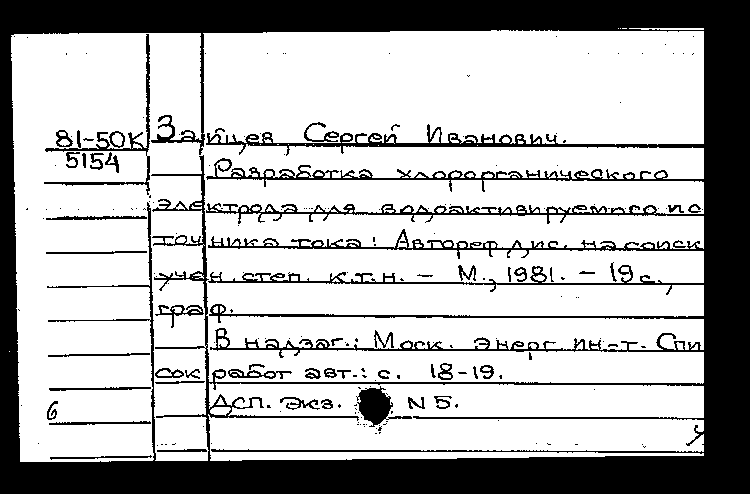 81-50К Зайцев, Сергей Иванович.
5154
Разработка хлорорганического
электрода для водоактивируемого ис
точника тока: Автореф дис. на соиск
учен. степ. к.т.н. – М., 1981. – 19 с.,
граф.
В надзаг.: Моск. энерг ин-т. Спи
сок работ авт.: с. 18-19.
6 ДСП. Экз. N 5.